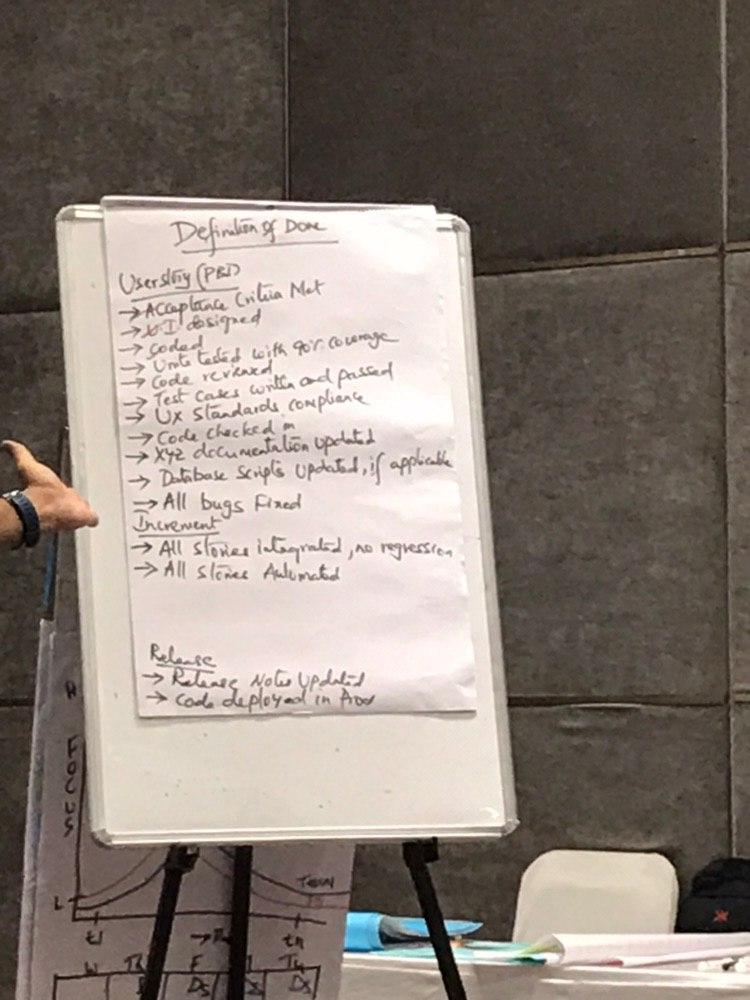 Definition of Done
Userstory (PBI)
→ Acceptance Criteria Met
→ UI designed
→ Coded
→ Unit tested with 90% coverage
→ Code reviewed
→ Test cases written and passed
→ UX standards compliance
→ Code checked in
→ XYZ documentation updated
→ Database Scripts Updated, if applicable
→ All bugs Fixed
Increment
→ All stories integrated, no regression
→ All stories Automated
Release
→ Release Notes Updated
→ Code deployed in Prod
H
FOCUS
L
t1
tn
W Th F Tu
Ds Ds Ds